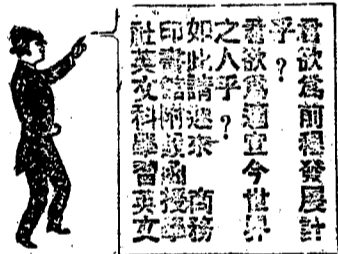 君欲爲前程發展計
乎？
君欲爲適宜今世界
之人乎？
如此請速來商務
印書館附設函授學
社英文科學習英文